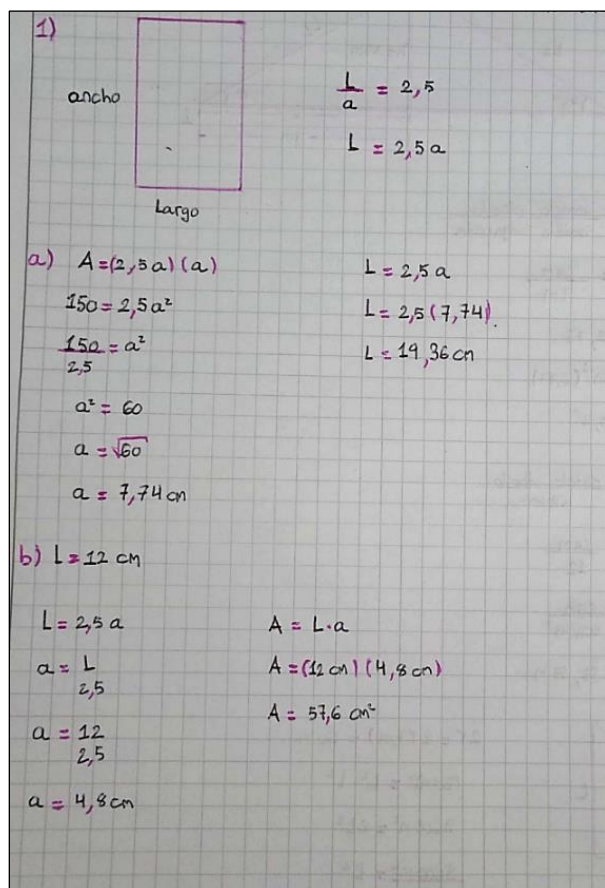 1)
ancho
Largo
L/a = 2,5
L = 2,5a
a) A=(2,5a)(a)
150 = 2,5a²
150/2,5 = a²
a² = 60
a = √60
a = 7,74 cm
L = 2,5a
L = 2,5(7,74).
L = 19,36 cm
b) L = 12 cm
L = 2,5a
a = L/2,5
a = 12/2,5
a = 4,8 cm
A = L·a
A = (12 cm)(4,8 cm)
A = 57,6 cm²